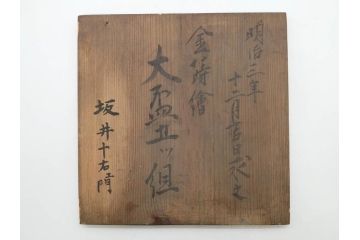 明治三年
十二月吉日求之
金蒔繪
大盃五ッ組
坂井十右エ門